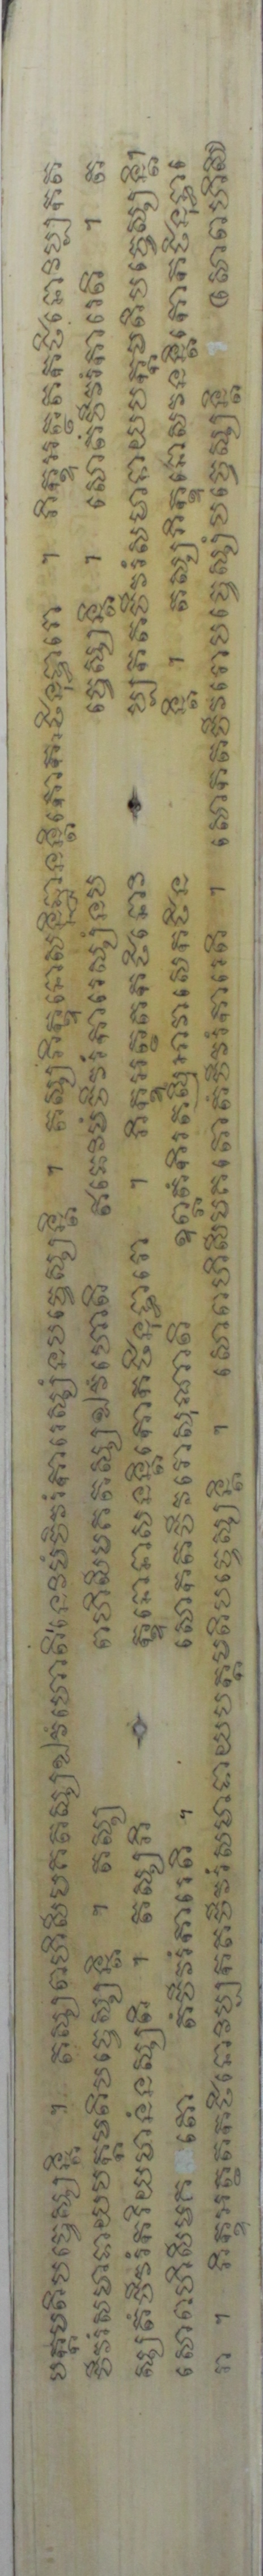 បក្កមតិបច្ចេស្សន្តិ ។ តស្សពហិសីមគតស្សឯវំហោតិនេវិមំចិវរំការេស្សំនបច្ចេស្សន្តិ ។ តស្សភិក្ខុនោសន្និដ្ឋានន្តិកោកថិនុទ្ធារោ ។ ភិក្ខុអត្ថតកថិនោវិប្បកត
ចីវរំសមាទាយបក្កមតិបច្ចេស្សន្តិ ។ តស្ស ពហិសីមគតស្សឯវំហោតិ ឥធេវិមំចីវរំការេស្សំនប ច្ចេស្សន្តិ ។ សោតំចីវរំការេតិ ។ ត
ស្សតំចីវរំករិយមានំនស្សតិ ។ តស្សភិ ក្ខុនោនាសនន្តិកោកថិនុទ្ធារោ ។ ភិក្ខុអត្ថតកថិនោវិ ប្បកតចីវរំសមាទាយបក្កមតិបច្ចេស្សន្តិ។
សោពហិសីមគ តោ តំចីវរំការេតិ ។ សោកតចីវរោសុណាតិ ឧព្ភតំកិរតស្មឹអាវាសេកថិន ន្តិ ។ តស្សភិក្ខុនោសវនន្តិកោកថិនុទ្ធាេ
រា ។ ភិក្ខុអត្ថតកថិនោវិប្បកតចីវរំសមាទាយបក្កមតិបច្ចេស្សន្តិ ។ សោពហិសីមគតោតំចីវរំការេតិ ។ សោកតចីវរោបច្ចេស្សំបច្ចេស្សន្តិ (សោពហិសី)